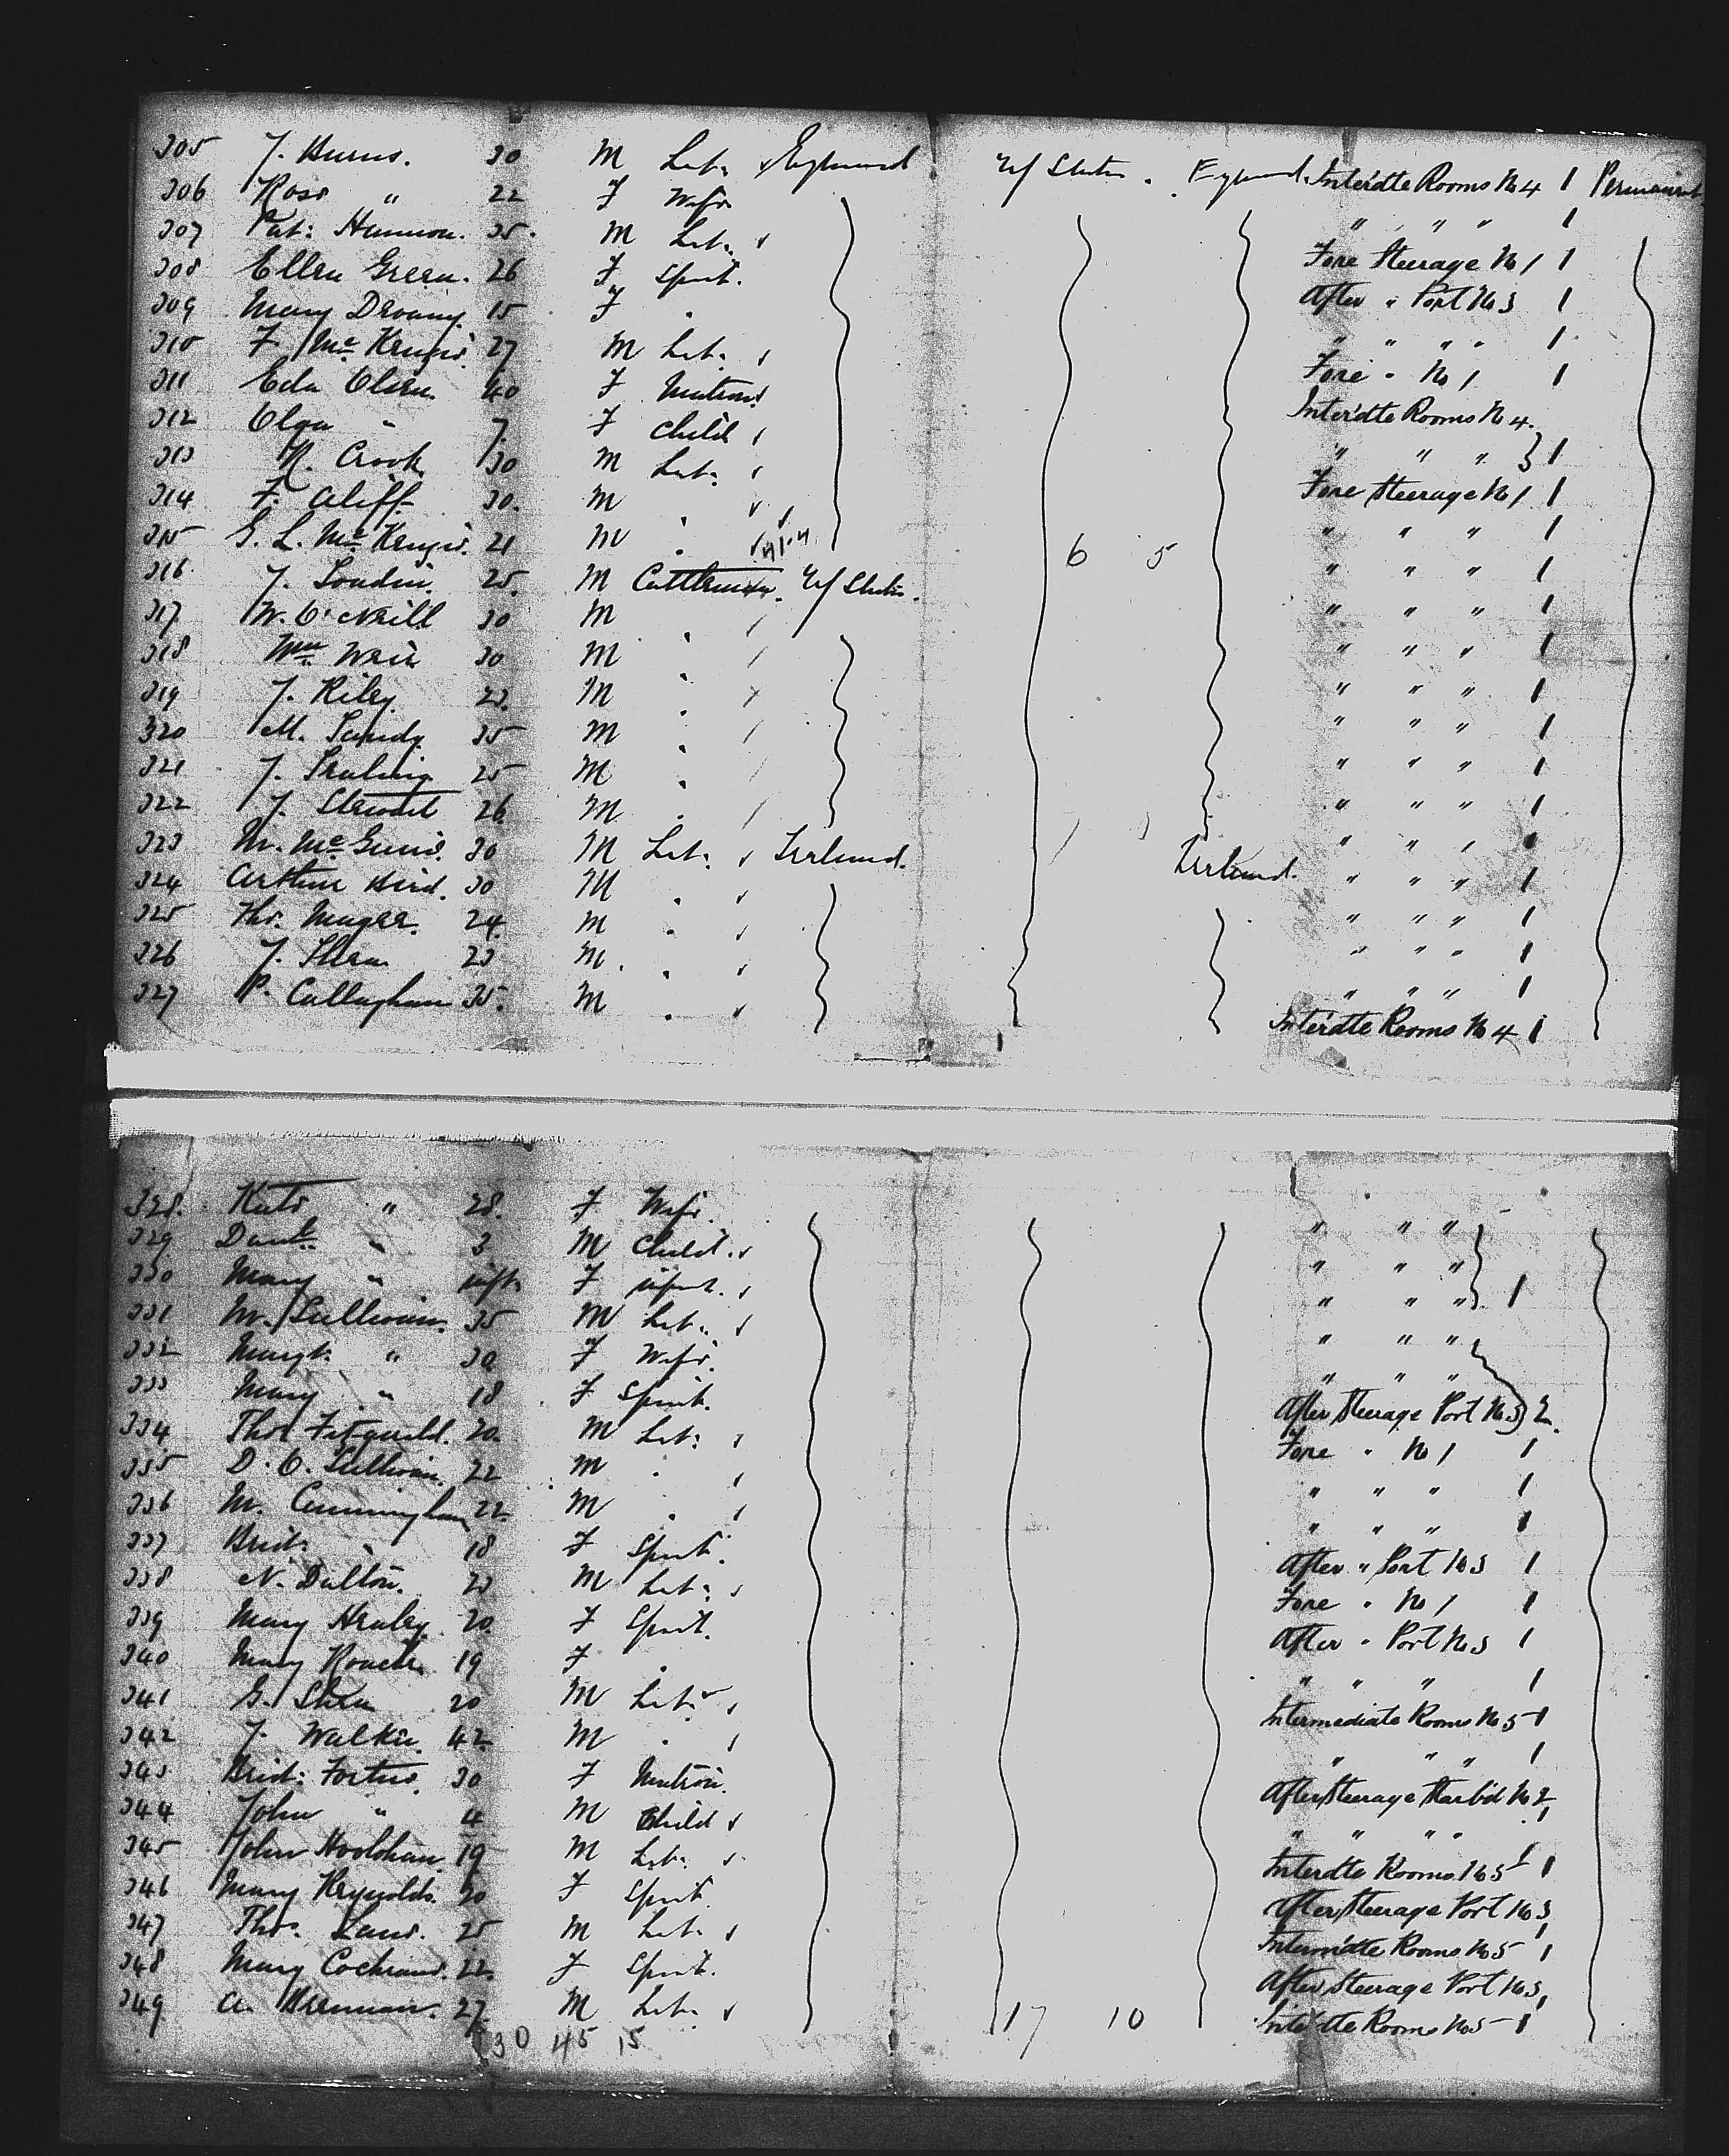 305 J. Burns. 30 M Lab: England U/States. England. Interdte Rooms No 4 1 Permanent
306 Rose " 22 F Wife " " " " 1
307 Pat: Hannon. 35. M Lab: Fore Steerage No 1 1
308 Ellen Green. 26 F Spinst. After " Port No 3 1
309 Mary Devany. 15 F " " " " " 1
310 F. McKenzie. 27 M Lab: Fore " No 1 1
311 Eda Olsen. 40 F Matron Interdte Rooms No 4.
312 Olga " 7. F Child " " " } 1
313 R. Crook 30 M Lab: Fore Steerage No 1 1
314 F. Cliff. 30. M " " " " 1
315 G. L. McKenzie. 21 M " 6 5 " " " 1
316 J. Loudin. 25. M Cattleman. U/States. " " " 1
317 W. O'Neill 30 M " " " " 1
318 Wm Weir 30 M " " " " 1
319 J. Riley. 23. M " " " " 1
320 M. Sandy. 35 M " " " " 1
321 J. 25 M " " " " 1
322 J. Stewart 26 M " " " " 1
323 M. McGuire. 30 M Lab: Ireland. Ireland. " " " 1
324 Arthur Bird. 30 M " " " " 1
325 Thos. Magee. 24. M " " " " 1
326 J. Shea 23 M. " " " " 1
327 P. Callaghan 35. M " Interdte Rooms No 4 1
328. Kate " 28. F Wife. " " "
329 Danl. " 3 M Child. " " "
330 Mary " inft. F infant. " " " 1
331 M. Sullivan. 35 M Lab: " " "
332 Margt. " 30 F Wife. " " "
333 Mary " 18 F Spinst. After Steerage Port No 3 2.
334 Thos Fitzgerald. 20. M Lab: Fore " No 1 1
335 D. O. Sullivan. 22 M " " " " 1
336 M. Cunningham 22. M " " " " 1
337 Brid: " 18 F Spinst. After " Port No 3 1
338 N. Dalton. 23 M Lab: Fore " No 1 1
339 Mary Healey. 20. F Spinst. After " Port No 3 1
340 Mary Roach. 19 F " " " " 1
341 G. Shea 20 M Lab: Intermediate Rooms No 5 1
342 J. Walker. 42. M " " " " 1
343 Brid: Fortune. 30 F Matron. After Steerage Starb'd No 2
344 John " 4 M Child " " " " 1
345 John Hoolohan. 19 M Lab: Interdte Rooms No 5 1
346 Mary Reynolds. 20 F Spinst After Steerage Port No 3 1
347 Thos. Lane. 25 M Lab: Intermdte Rooms No 5 1
348 Mary Cochrane. 22. F Spinst. After Steerage Port No 3, 1
349 A. Brennan. 27. M Lab: 17 10 Interdte Rooms No 5 1
30 45 15